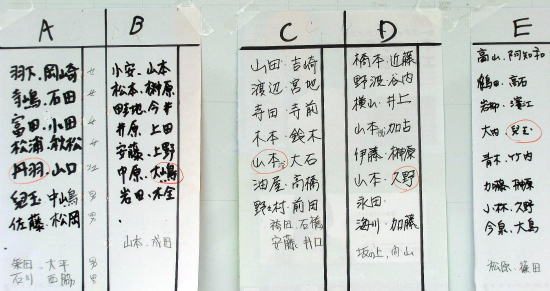 A
羽下、岡崎 女
寺嶋、石田 女
富田、小田 女
松浦、敏松 女
丹羽、山口
児玉、中嶋 男
佐藤、松岡 男
柴田、大平 男
石川 西脇 男
B
小安、山本
松本、榊原
今井
井原、上田
安藤、上野
中原、大嶋
岩田、木全
山本、成田
C
山田、吉崎
渡辺、宮地
寺田、寺前
木本、鈴木
山本 大石
油屋、高橋
野々村、前田
袴田、石橋
安藤、井口
D
橋本、近藤
野波、谷内
横山、井上
山本 加古
伊藤、榊原
山本、久野
永田、
海川、加藤
坂の上、向山
E
高山、阿知和
鶴田、高石
岩郷、濱江
大田、児玉
青木、竹内
加藤、榊原
小林、久野
今泉、大島
松原、篠田